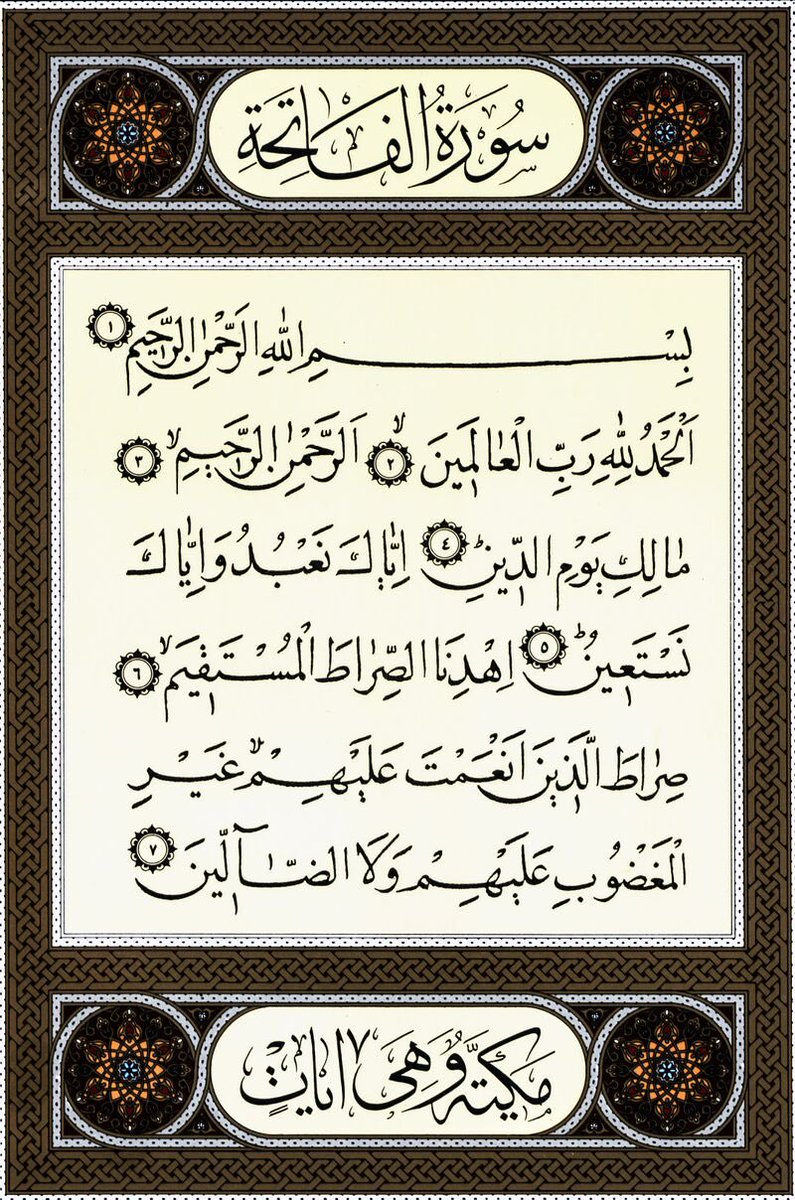 سُورَةُ الْفَاتِحَةِ
بِسْمِ اللّٰهِ الرَّحْمٰنِ الرَّحٖيمِ ١
اَلْحَمْدُ لِلّٰهِ رَبِّ الْعَالَمٖينَۙ ٢ اَلرَّحْمٰنِ الرَّحٖيمِۙ ٣
مَالِكِ يَوْمِ الدّٖينِؕ ٤ اِيَّاكَ نَعْبُدُ وَاِيَّاكَ
نَسْتَعٖينُؕ ٥ اِهْدِنَا الصِّرَاطَ الْمُسْتَقٖيمَۙ ٦
صِرَاطَ الَّذٖينَ اَنْعَمْتَ عَلَيْهِمْۙ غَيْرِ
الْمَغْضُوبِ عَلَيْهِمْ وَلَا الضَّٓالّٖينَ ٧
مَكِّيَّةٌ وَهِيَ ٧ اٰيَاتٍ